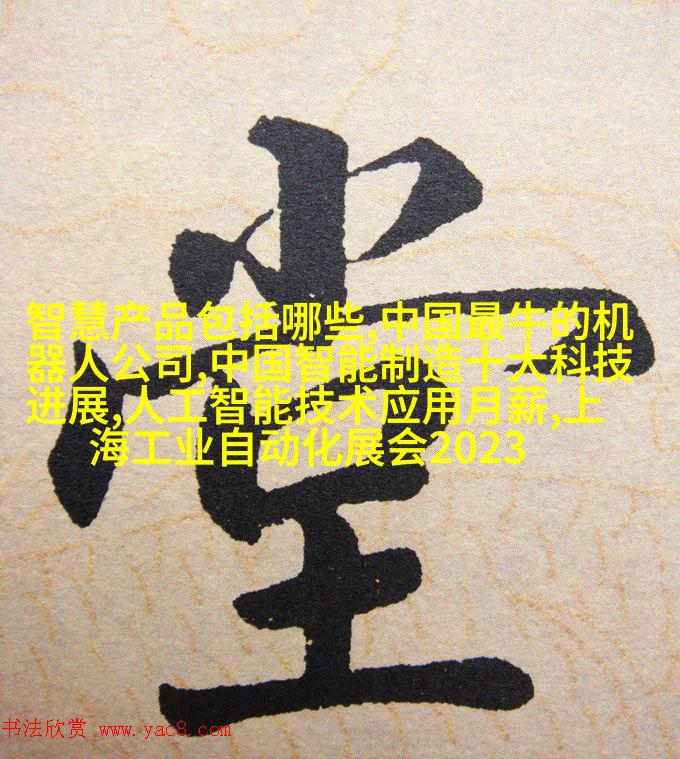 堂
智慧产品包括哪些,中国最牛的机
器人公司,中国智能制造十大科技
进展,人工智能技术应用月薪,上
海工业自动化展会2023
书法欣赏 www.yac8.com